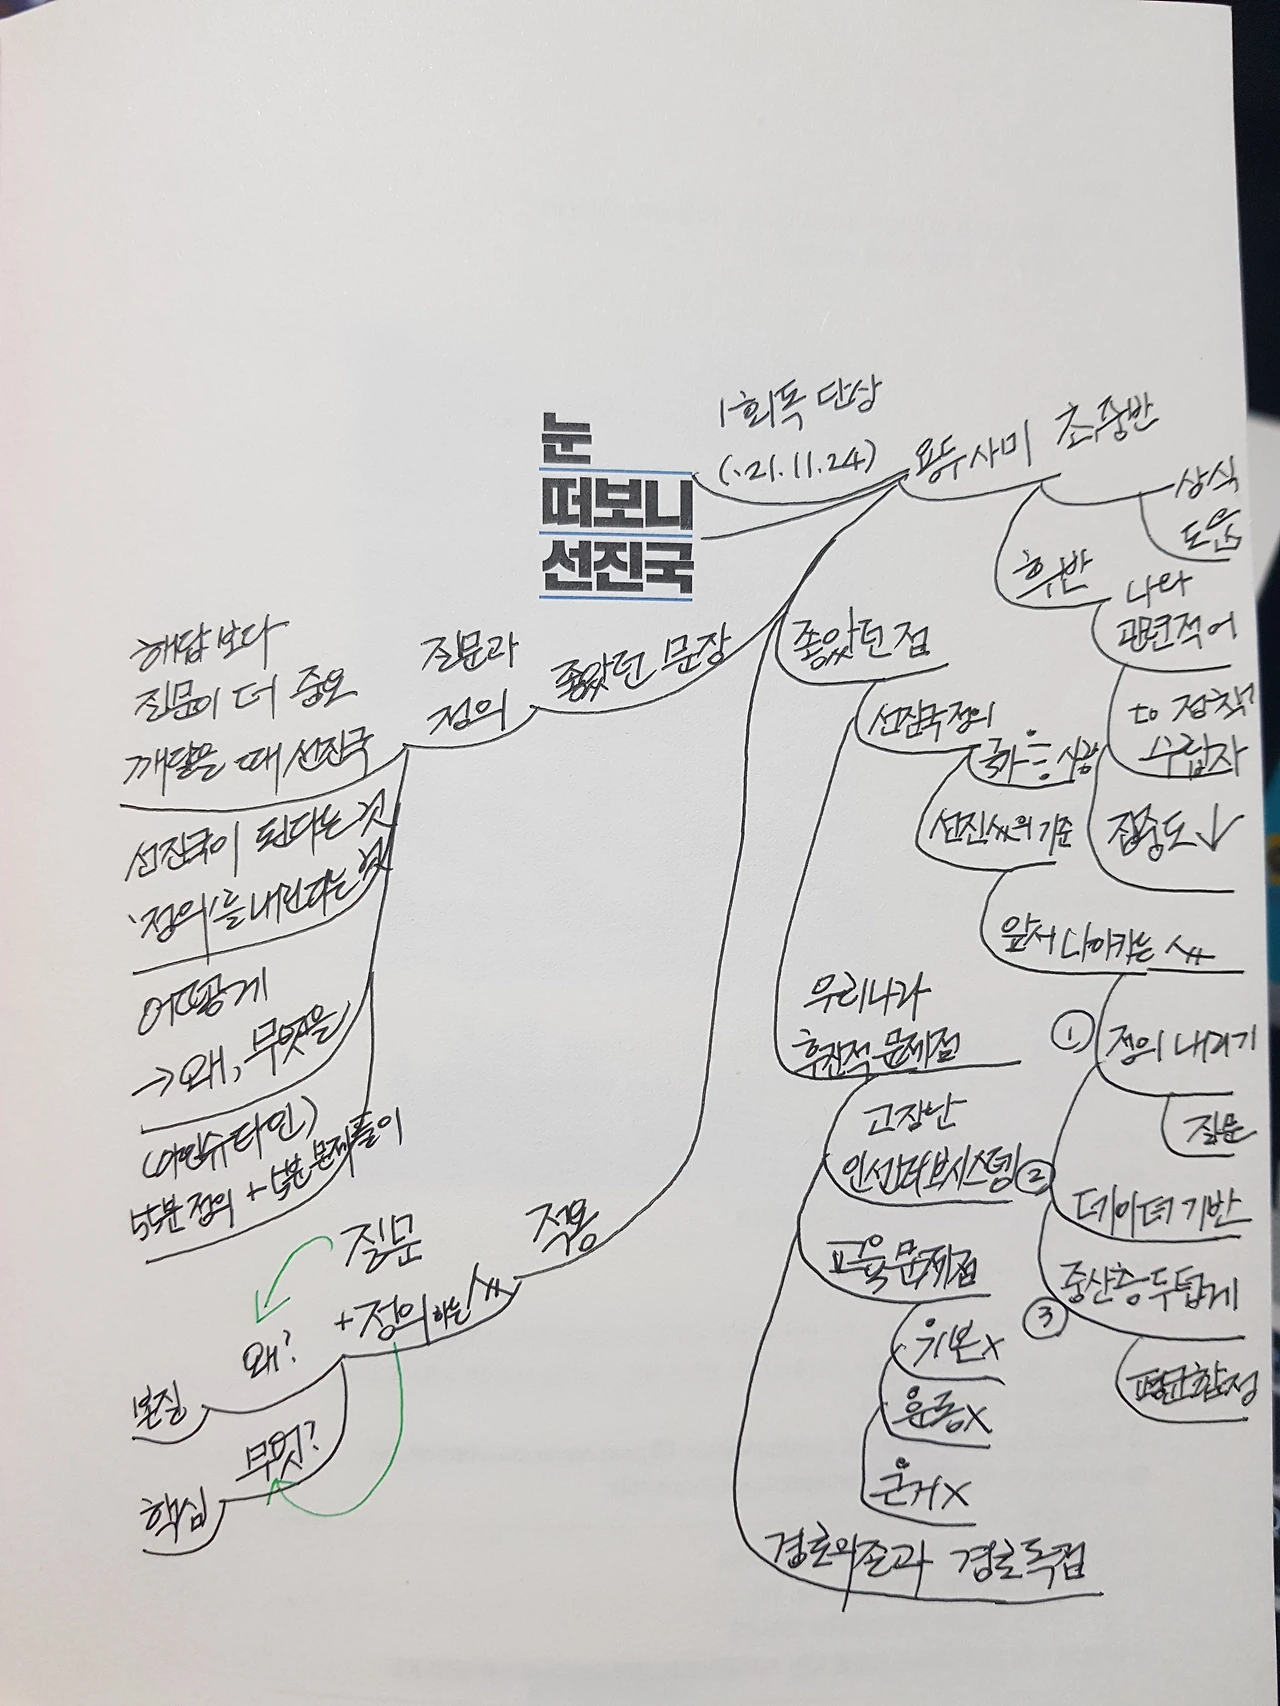 눈
떠보니
선진국
1회독 단상
('21.11.24)
용두사미
초,중반
상식
도움
후반
나와
관련적어
to 정책
수립자
집중도↓
좋았던 점
선진국 정의
국가
사람
선진 의 기준
앞서 나아가는
① 정의 내리기
질문
② 데이터 기반
③ 중산층 두텁게
평균 함정
우리나라
후진적 문제점
고장난
인센티브 시스템
교육 문제점
기본x
운동x
근거x
경로의존과 경로독점
좋았던 문장
질문과
정의
해답보다
질문이 더 중요
깨달을 때 선진국
선진국이 된다는 것
'정의'를 내린다는 것
어떻게
→왜, 무엇을
(아인슈타인)
55분 정의 + 5분 문제풀이
적용
질문
+정의 하는
왜?
본질
무엇?
핵심